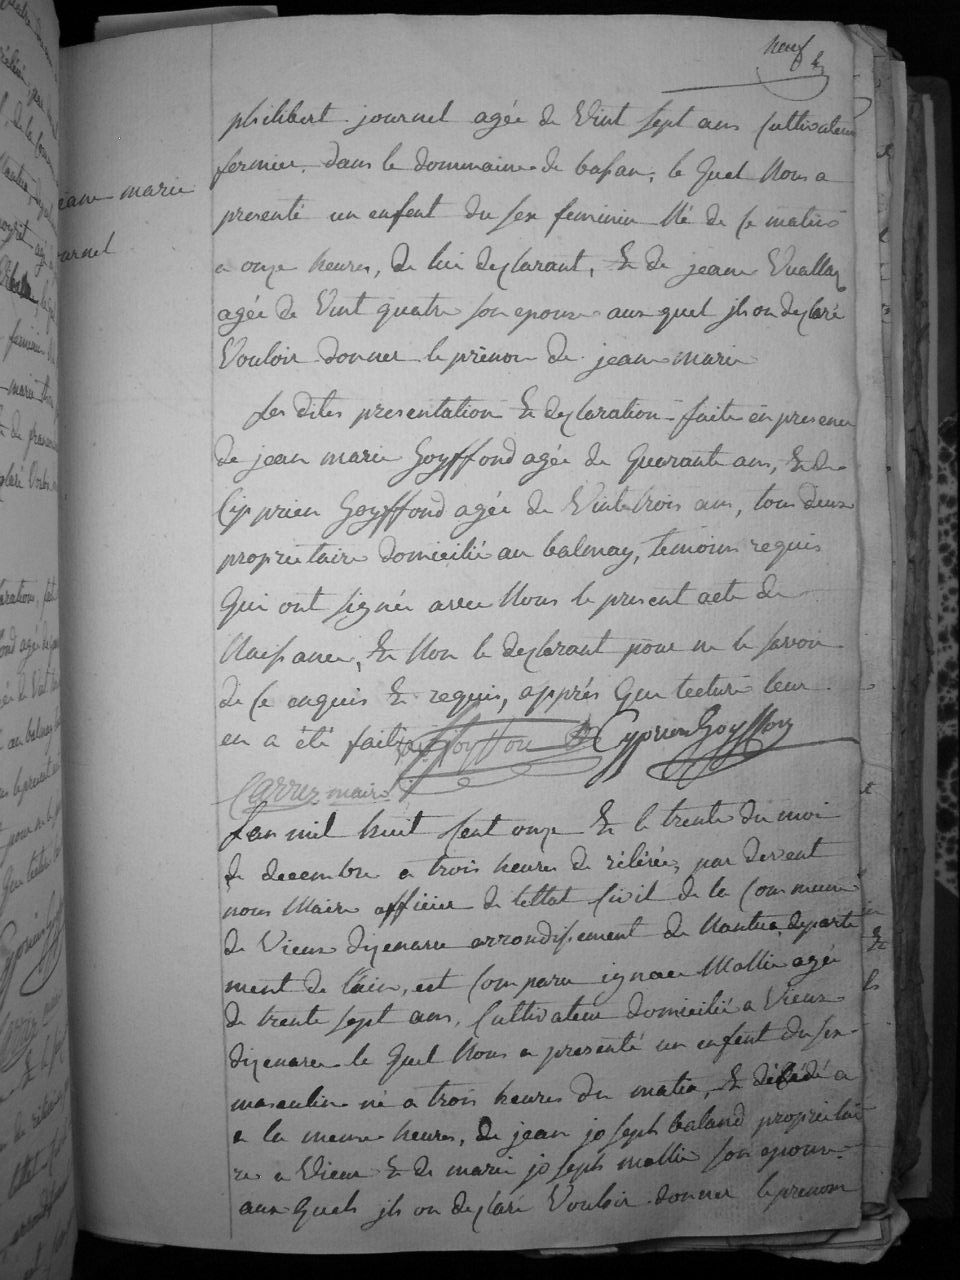 neuf
philibert journel agée de Vint sept ans Cultivateur
fermier dans le dommaine de bafan, le quel Nous a
presenté un enfent du sex feminin Né de ce matin
a onze heures, de lui declarant, Et de jeane Vuallaz
agée de Vint quatre son epouse auxquel jls on declaré
Vouloir donner le prénon de jeane marie
jeane marie
journel
Les dites presentation Et declaration faite en presence
de jean marie Goyffond agée de Quarante ans, Et de
Cipprien Goyffond agée de Vinte trois ans, tous deux
proprietaire domicilié au balmay, temoins requis
Qui ont signée avec Nous le present acte de
Naisance, Et Non le declarant pour ne le savoir
de ce enquis Et requis, apprés Que lecture leur
en a été faite Goyffon Cyprien Goyffon
Carrier maire
L'an mil huit Cent onze Et le trente du moi
de decembre a trois heures de rélévée, par devent
nous Maire officier de lettat Civil de la Commune
de Vieux dizenave arrondisement de Nantua, departe
ment de l'ain, est Comparu ignace Mallie agée
de trente sept ans, Cultivateur domicilié a Vieux
dizenave le Quel Nous a presenté un enfent du sex
masculin né a trois heures du matin, Et décédé a
a la meme heures, De jean joseph baland proprietai
re a Vieux Et de marie joseph mallie son epouse
aux Quels jls on declaré Vouloir donner le prenom